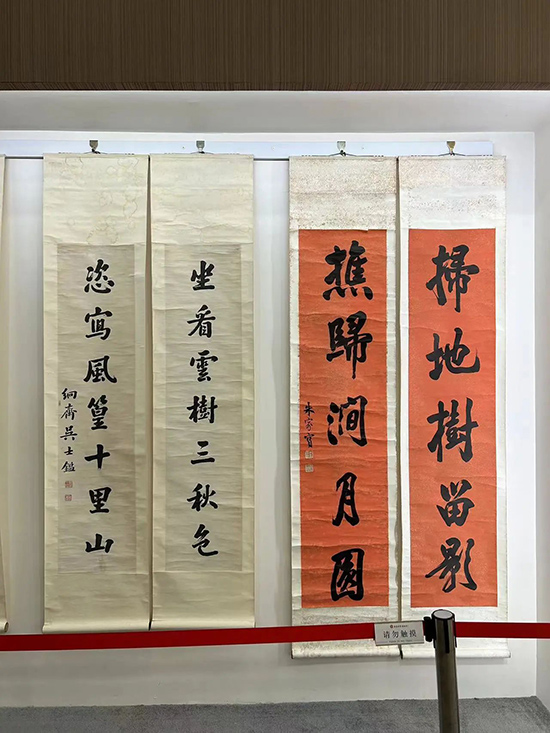 掃地樹留影
樵歸澗月圓
朱家寶
坐看雲樹三秋色
恣寫風篁十里山
絅齋吳士鑑
请勿触摸